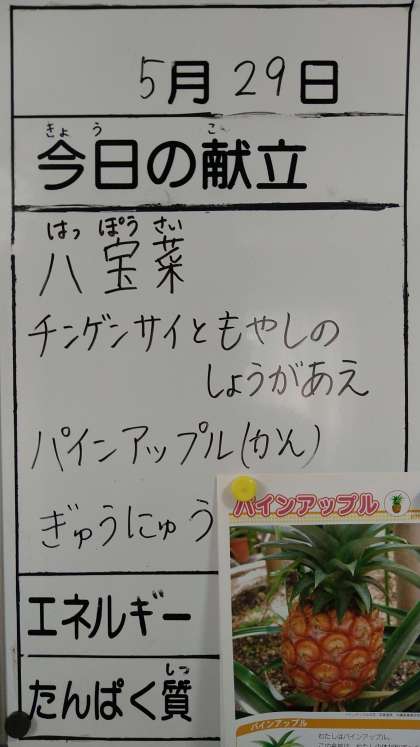 5月29日
きょう こ
今日の献立
はっ ぽう さい
八宝菜
チンゲンサイともやしの
しょうがあえ
パインアップル(かん)
ぎゅうにゅう
パインアップル
エネルギー
しつ
たんぱく質
パインアップル
わたしはパインアップル。